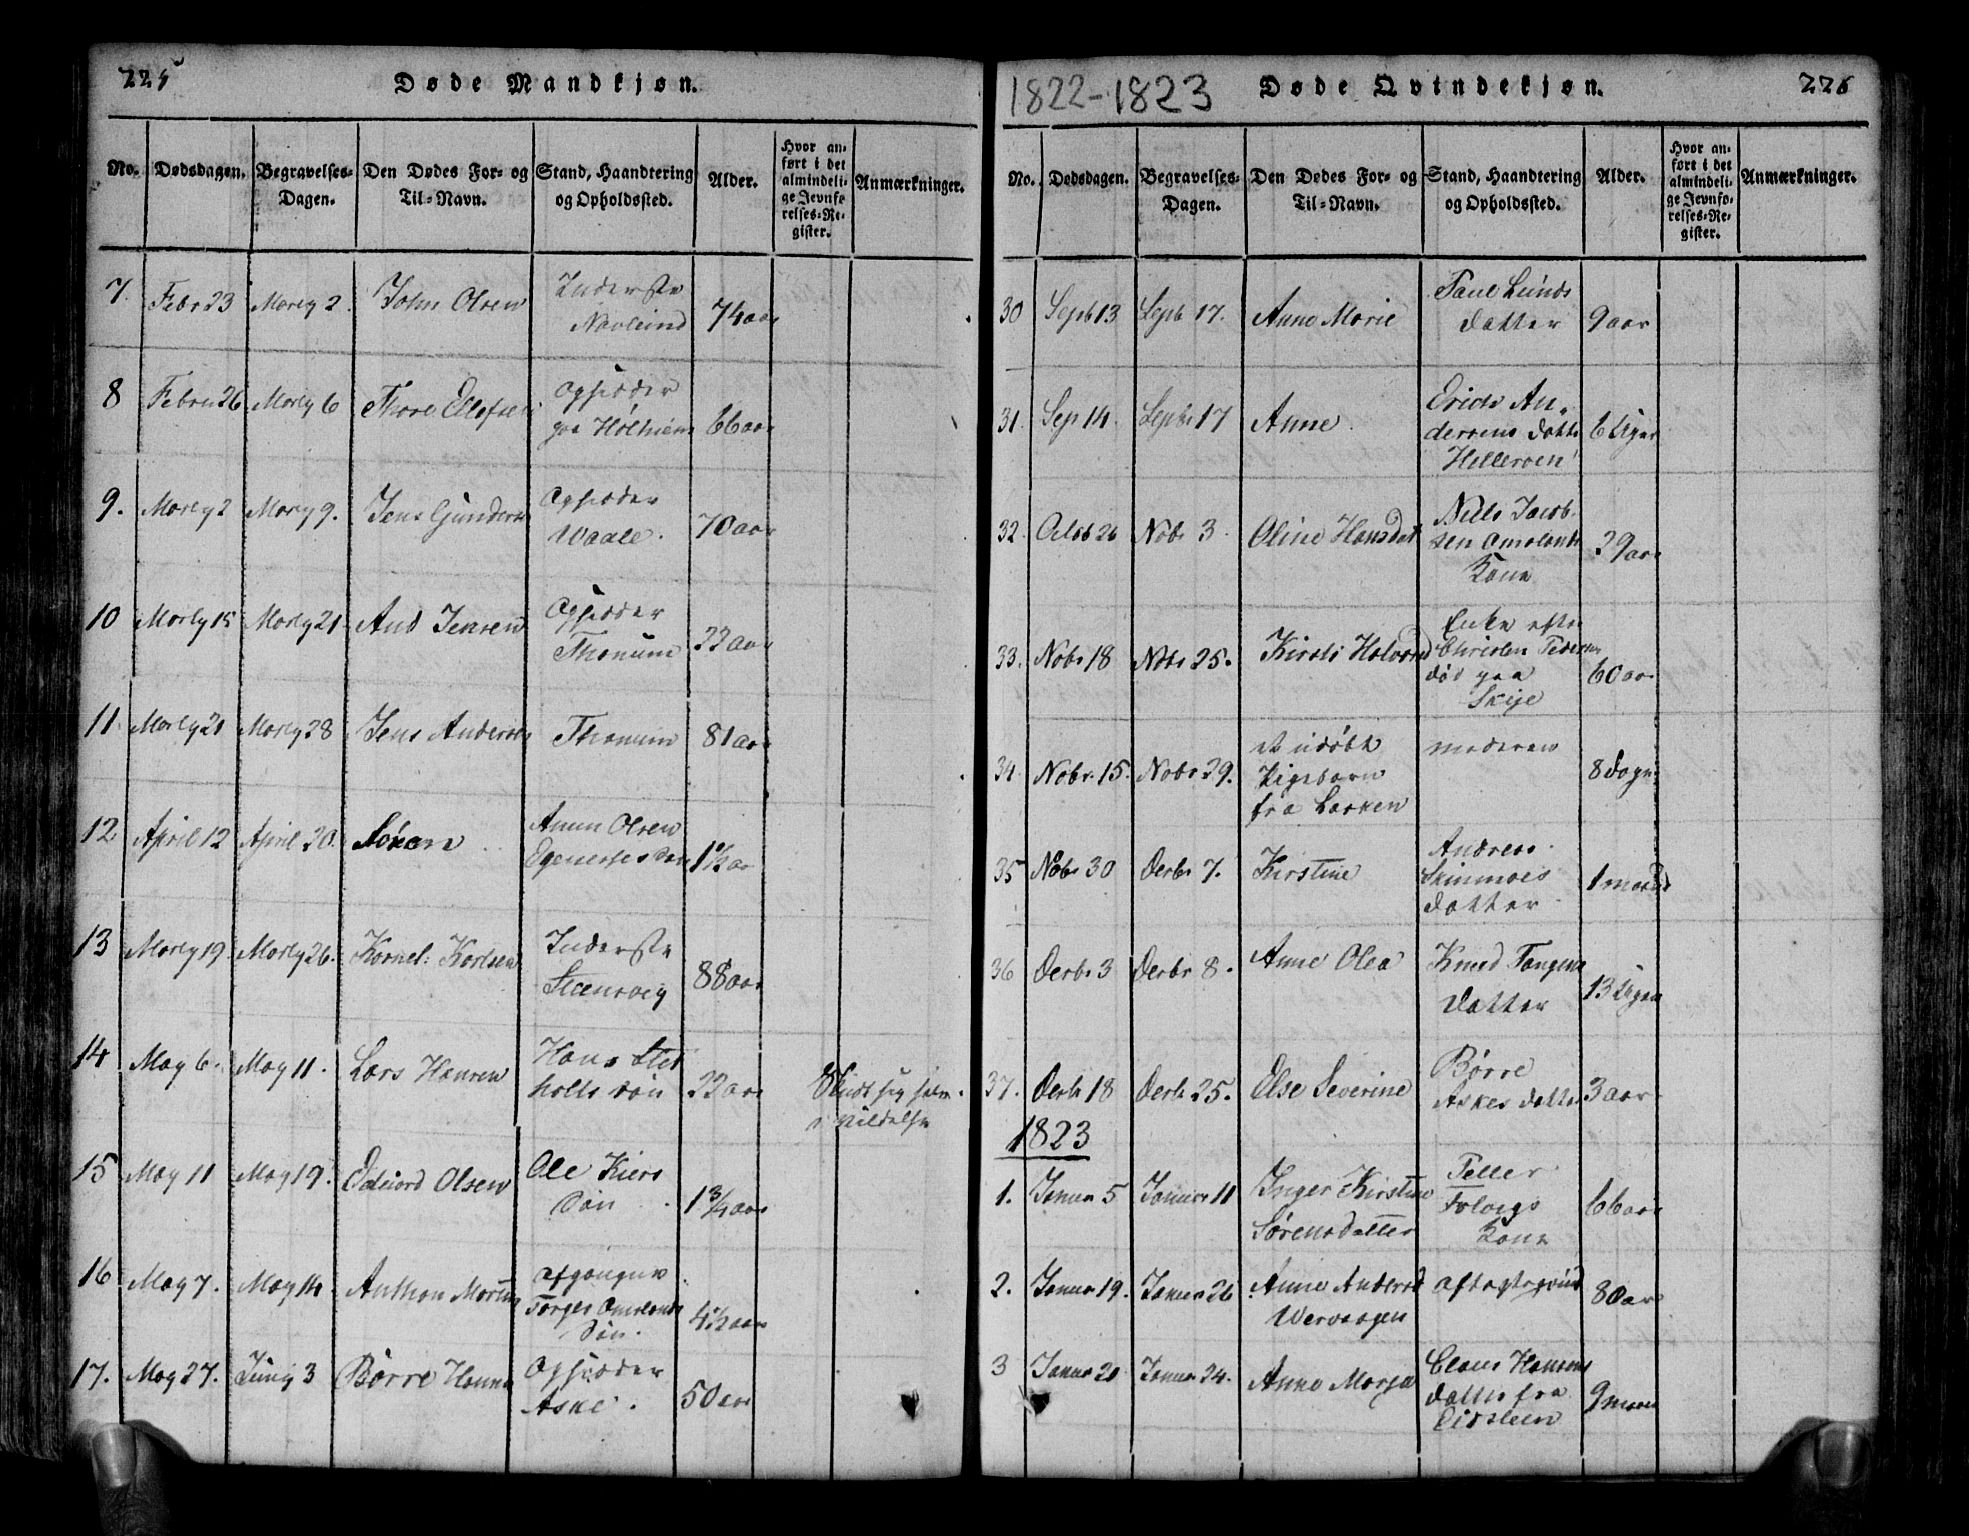 225
Døde Mandkjøn.
No.
Dødsdagen.
Begravelses-Dagen.
Den Dødes For- og Til-Navn.
Stand, Haandtering og Opholdssted.
Alder.
Hvor anført i det almindelige Jevnførelses-Register.
Anmærkninger.
7. Febr 23 Martz 2. John Olsen Inderste 74 aar
8 Febru 26 Martz 6 Thore Ellefsen Opsidder paa Holhiem 66 aar
9. Martz 2 Martz 9. Jens Gunders Opsidder Waale. 70 aar
10 Martz 15 Martz 21 And Jensen Opsidder Thonum 22 aar
11. Martz 21 Martz 28 Jens Andersen Thonum 81 aar
12 April 12 April 20. Johan Anun Olsen 1½ aar
13 Martz 19 Martz 26. Kornel: Karlsen Inderste Steensvig 88 aar
14 May 6. May 11. Lars Hansen Hans Stet holts søn 22 aar Skudt sig selv i vildelse
15 May 11 May 19. Edvard Olsen Ole Kiers Søn 1¾ aar
16 May 7. May 14 Anthon afgangne Torger Omelands Søn. 4½ aar
17. May 27. Juny 3 Børre Hansen Opsidder Aske. 50 aar
1822-1823
Døde Qvindekjøn.
226
No.
Dødsdagen.
Begravelses-Dagen.
Den Dødes For- og Til-Navn.
Stand, Haandtering og Opholdssted.
Alder.
Hvor anført i det almindelige Jevnførelses-Register.
Anmærkninger.
30 Septb 13 Septb 17. Anne Marie Paul Lunds datter 9 aar
31. Sep 14. Septbr 17 Anne. Erich Andersens datt Hellersen 6 Uger
32. Octob 26 Nobr 3 Oline Hansdat Niels Jacobsen Omelands Kone 29 aar
33. Nobr 18 Nobr 25. Kirsti Halvord Enke efter Christen Pedersen død paa Skije 60 aar
34 Nobr. 15. Nobr 29. et udøbt Pigebarn fra Løkken moderen 8 dage
35 Nobr 30 Decbr 7. Kirstine Andreas Skinmoes datter 1 maaned
36 Decbr 3 Decbr 8. Anne Olea Knud Tangens datter 13 Uger
37. Decbr 18 Decbr 25. Else Severine Børre Askes datter 3 aar
1823
1. Januar 5 Januar 11 Inger Kirstine Sørensdatter Peller Kone 66 aar
2. Januar 19. Januar 26 Anne Andersd Wervaagen aftægtsqvind 80 aar
3 Januar 20 Januar 24. Anne Marja Claus Hansens datter fra 9 maan